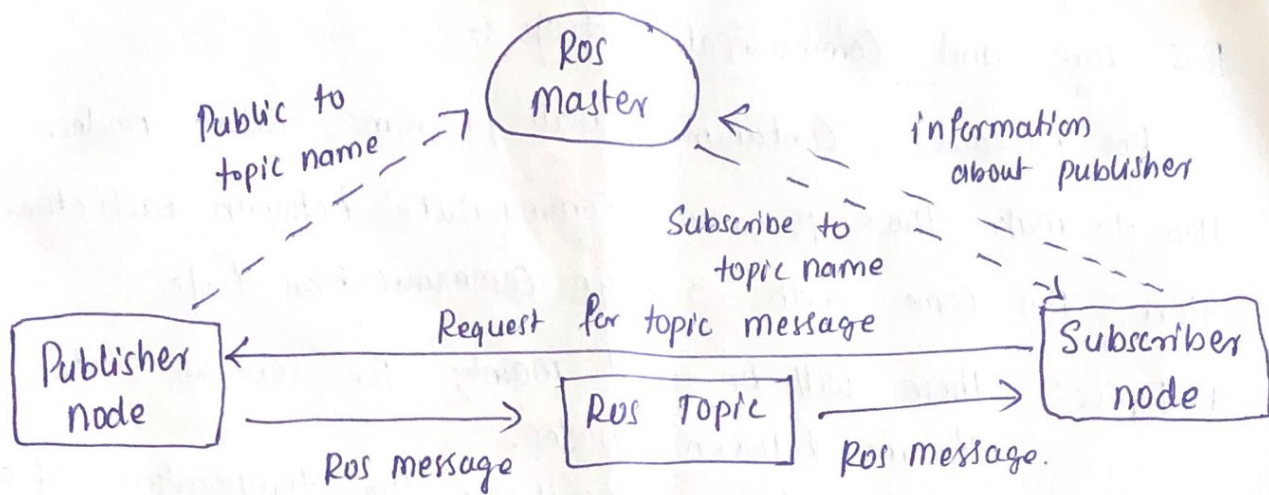 Ros
Master
Public to
topic name
information
about publisher
Subscribe to
topic name
Request for topic message
Publisher
node
Ros Topic
Subscriber
node
Ros message
Ros message.